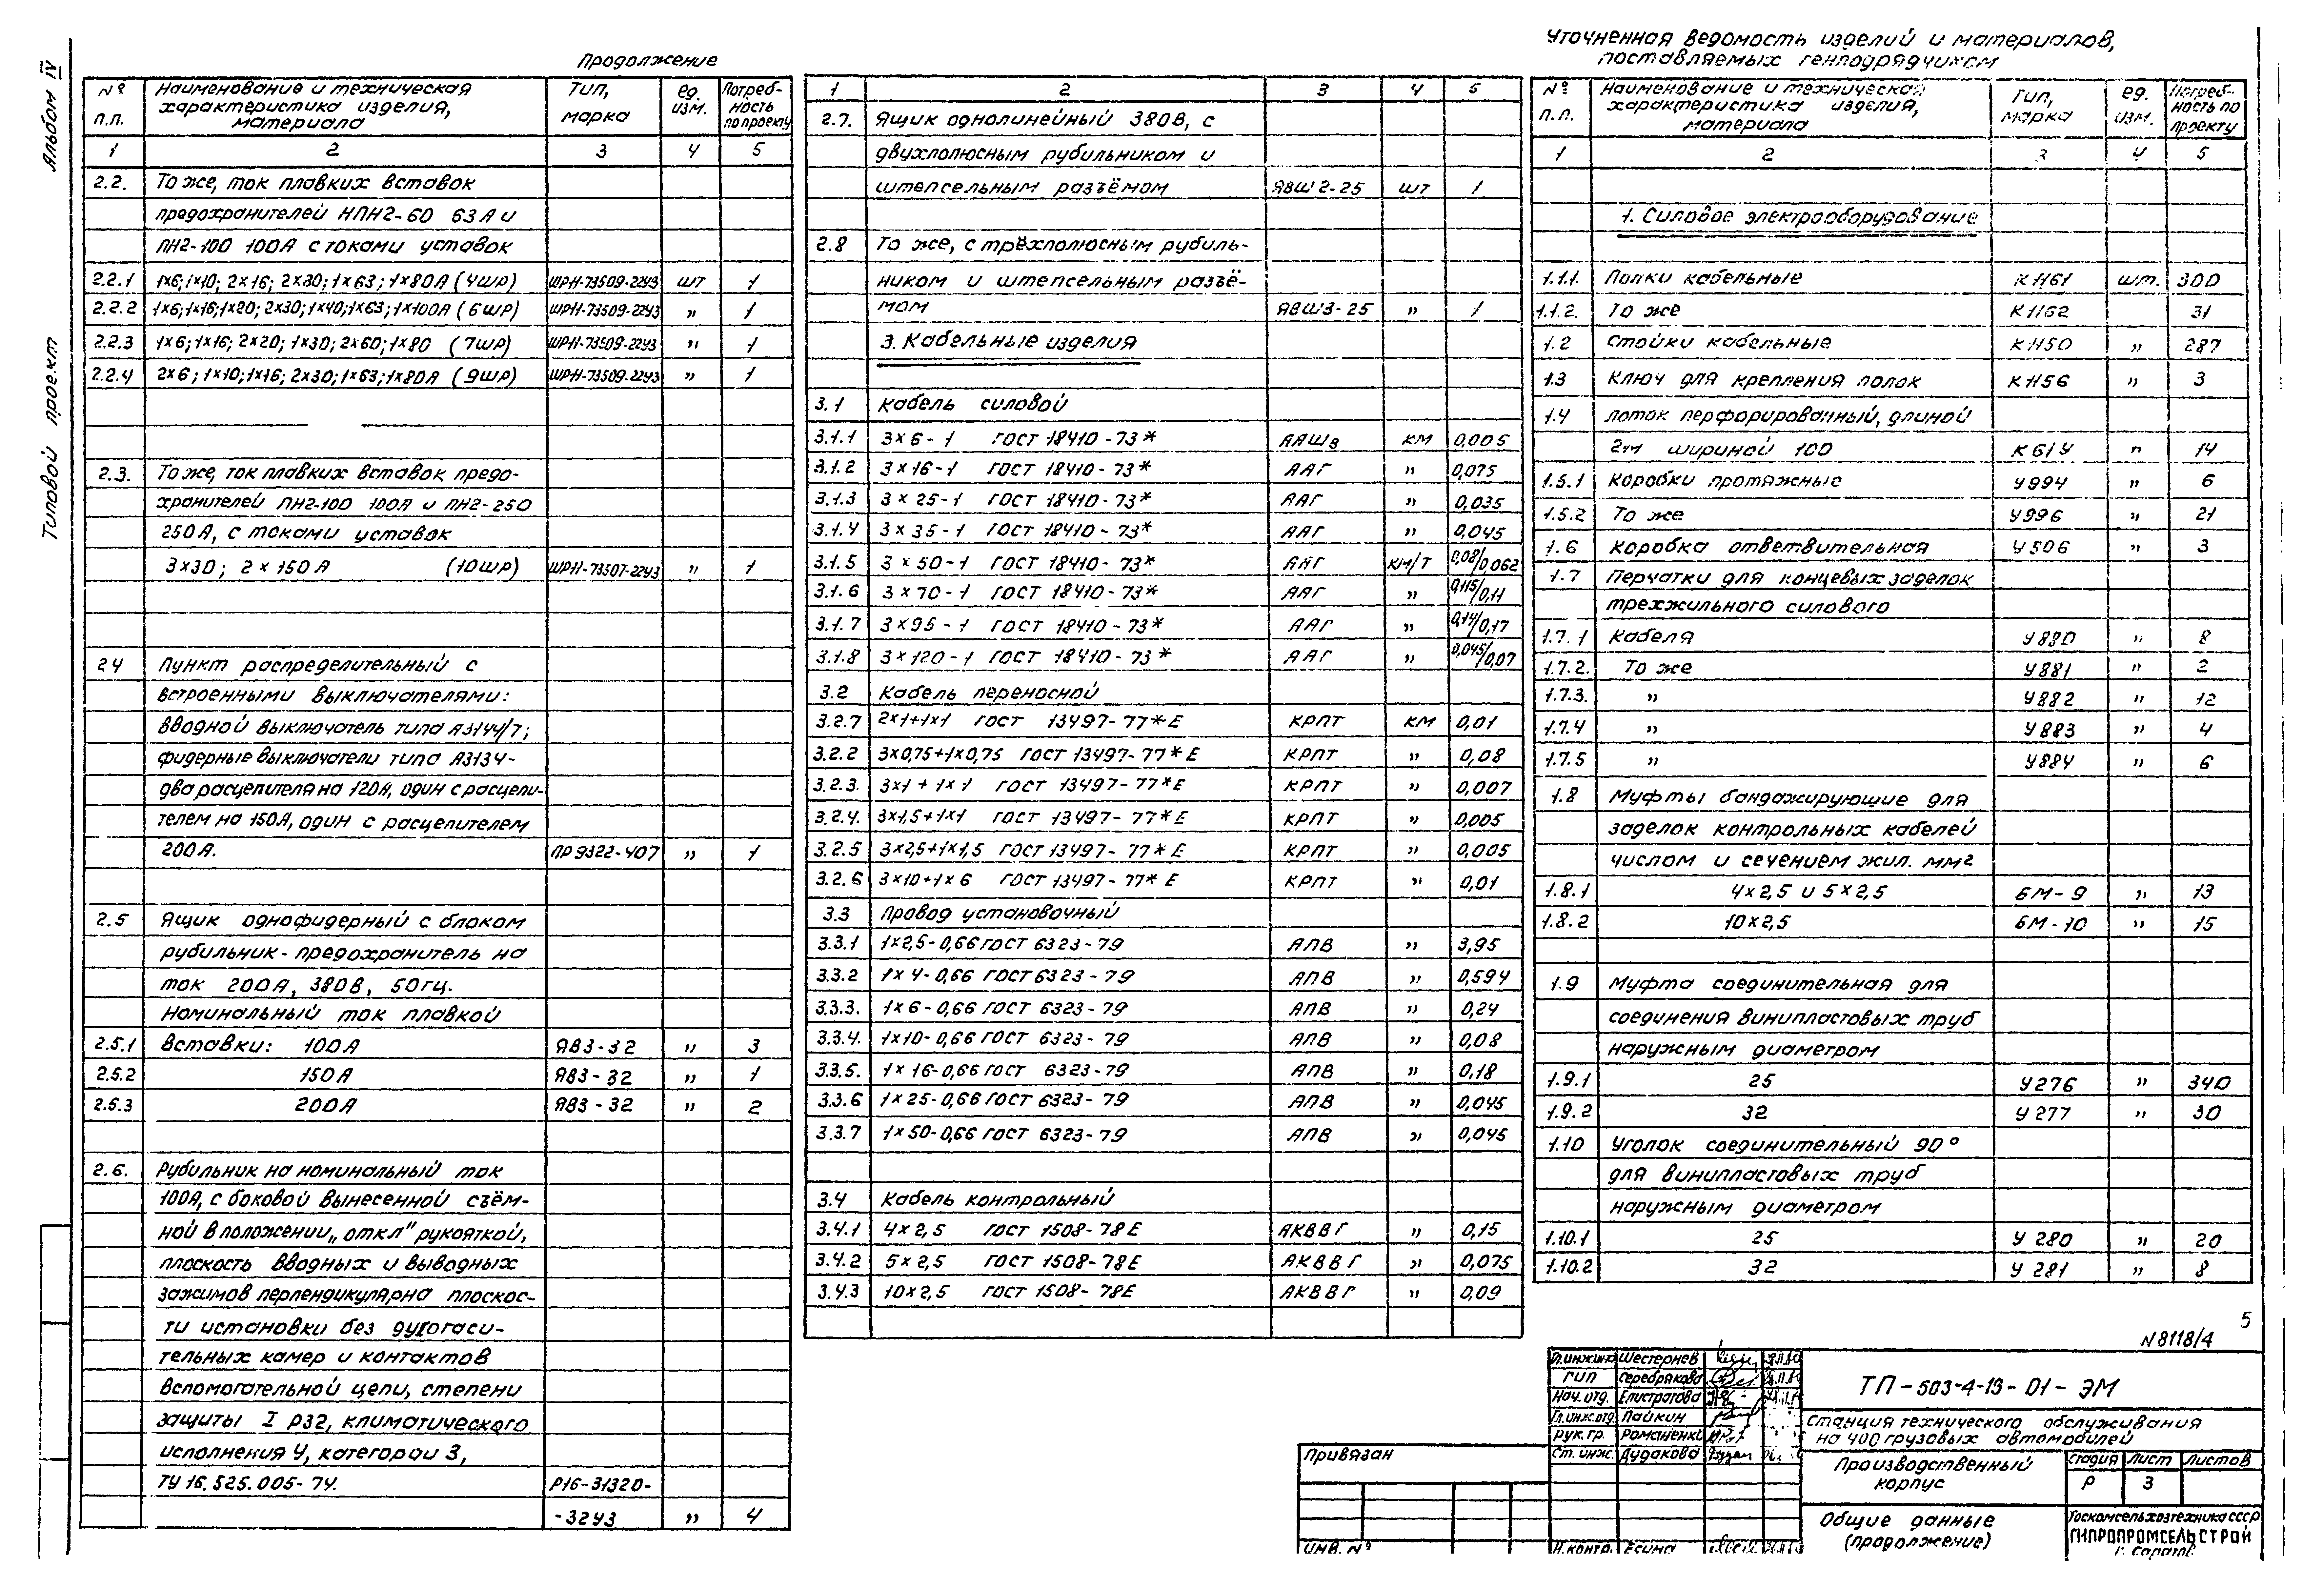 Альбом IV
Типовой проект
Продолжение
№ п.п. Наименование и техническая характеристика изделия, материала Тип, марка ед. изм. Потреб-ность по проекту
1 2 3 4 5
2.2. То же, ток плавких вставок
предохранителей НПН2-60 63А и
ПН2-100 100А с токами уставок
2.2.1 1×6; 1×10; 2×16; 2×30; 1×63; 1×80А (4ШР) ШР11-73509-22У3 шт 1
2.2.2 1×6; 1×16; 1×20; 2×30; 1×40; 1×63; 1×100А (6ШР) ШР11-73509-22У3 " 1
2.2.3 1×6; 1×16; 2×20; 1×30; 2×60; 1×80 (7ШР) ШР11-73509-22У3 " 1
2.2.4 2×6; 1×10; 1×16; 2×30; 1×63; 1×80А (9ШР) ШР11-73509-22У3 " 1
2.3. То же, ток плавких вставок предо-
хранителей ПН2-100 100А и ПН2-250
250А, с токами уставок
3×30; 2×150А (10ШР) ШР11-73507-22У3 " 1
2.4 Пункт распределительный с
встроенными выключателями:
вводной выключатель типа А3144/7;
фидерные выключатели типа А3134-
два расцепителя на 120А, один с расцепи-
телем на 150А, один с расцепителем
200А. ПР9322-407 " 1
2.5 Ящик однофидерный с блоком
рубильник-предохранитель на
ток 200А, 380В, 50гц.
Номинальный ток плавкой
2.5.1 Вставки: 100А ЯВ3-32 " 3
2.5.2 150А ЯВ3-32 " 1
2.5.3 200А ЯВ3-32 " 2
2.6. Рубильник на номинальный ток
100А, с боковой вынесенной съём-
ной в положении „откл" рукояткой,
плоскость вводных и выводных
зажимов перпендикулярна плоскос-
ти истановки без дугогаси-
тельных камер и контактов
Вспомогательной цепи, степени
защиты I Р32, климатического
исполнения У, категории 3,
ТУ 16.525.005-74. Р16-31320-
-32У3 " 4
1 2 3 4 5
2.7. Ящик однолинейный 380В, с
двухполюсным рубильником и
штепсельным разъёмом ЯВШ2-25 шт 1
2.8 То же, с трёхполюсным рубиль-
ником и штепсельным разъё-
мом ЯВШ3-25 " 1
3. Кабельные изделия
3.1 Кабель силовой
3.1.1 3×6-1 ГОСТ 18410-73* ААШв км 0,005
3.1.2 3×16-1 ГОСТ 18410-73* ААГ " 0,075
3.1.3 3×25-1 ГОСТ 18410-73* ААГ " 0,035
3.1.4 3×35-1 ГОСТ 18410-73* ААГ " 0,045
3.1.5 3×50-1 ГОСТ 18410-73* ААГ км/т 0,08/0,062
3.1.6 3×70-1 ГОСТ 18410-73* ААГ " 0,115/0,11
3.1.7 3×95-1 ГОСТ 18410-73* ААГ " 0,14/0,17
3.1.8 3×120-1 ГОСТ 18410-73* ААГ " 0,045/0,07
3.2 Кабель переносной
3.2.7 2×1+1×1 ГОСТ 13497-77*Е КРПТ км 0,01
3.2.2 3×0,75+1×0,75 ГОСТ 13497-77*Е КРПТ " 0,08
3.2.3. 3×1+1×1 ГОСТ 13497-77*Е КРПТ " 0,007
3.2.4. 3×1,5+1×1 ГОСТ 13497-77*Е КРПТ " 0,005
3.2.5 3×2,5+1×1,5 ГОСТ 13497-77*Е КРПТ " 0,005
3.2.6 3×10+1×6 ГОСТ 13497-77*Е КРПТ " 0,01
3.3 Провод установочный
3.3.1 1×2,5-0,66 ГОСТ 6323-79 АПВ " 3,95
3.3.2 1×4-0,66 ГОСТ 6323-79 АПВ " 0,594
3.3.3. 1×6-0,66 ГОСТ 6323-79 АПВ " 0,24
3.3.4. 1×10-0,66 ГОСТ 6323-79 АПВ " 0,08
3.3.5. 1×16-0,66 ГОСТ 6323-79 АПВ " 0,18
3.3.6 1×25-0,66 ГОСТ 6323-79 АПВ " 0,045
3.3.7 1×50-0,66 ГОСТ 6323-79 АПВ " 0,045
3.4 Кабель контрольный
3.4.1 4×2,5 ГОСТ 1508-78Е АКВВГ " 0,15
3.4.2 5×2,5 ГОСТ 1508-78Е АКВВГ " 0,075
3.4.3 10×2,5 ГОСТ 1508-78Е АКВВГ " 0,09
Уточненная ведомость изделий и материалов,
поставляемых генподрядчиком
№ п.п. Наименование и техническая характеристика изделия, материала Тип, марка ед. изм. Потреб-ность по проекту
1 2 3 4 5
1. Силовое электрооборудование
1.1.1. Полки кабельные К1161 шт. 300
1.1.2. То же К1162 31
1.2 Стойки кабельные К1150 " 287
1.3 Ключ для крепления полок К1156 " 3
1.4 Лоток перфорированный, длиной
2м шириной 100 К61У " 14
1.5.1 Коробки протяжные У994 " 6
1.5.2 То же У996 " 21
1.6 Коробка ответвительная У506 " 3
1.7 Перчатки для концевых заделок
трехжильного силового
1.7.1 Кабеля У880 " 8
1.7.2. То же У881 " 2
1.7.3. " У882 " 12
1.7.4 " У883 " 4
1.7.5 " У884 " 6
1.8 Муфты бандажирующие для
заделок контрольных кабелей
числом и сечением жил. мм2
1.8.1 4×2,5 и 5×2,5 БМ-9 " 13
1.8.2 10×2,5 БМ-10 " 15
1.9 Муфта соединительная для
соединения винипластовых труб
наружным диаметром
1.9.1 25 У276 " 340
1.9.2 32 У277 " 30
1.10 Уголок соединительный 90°
для винипластовых труб
наружным диаметром
1.10.1 25 У 280 " 20
1.10.2 32 У 281 " 8
5
N8118/4
Гл.инж.ин. Шестернев
ГИП Серебрякова
Нач.отд. Елистратова
Гл.инж.отд. Лайкин
Рук. гр. Романенко
Ст. инж. Дудакова
Н.контр. Есина
Привязан
ИНВ. №
ТП-503-4-13-01-ЭМ
Станция технического обслуживания
на 400 грузовых автомобилей
Производственный
корпус
Стадия Лист Листов
Р 3
Общие данные
(продолжение)
Госкомсельхозтехника СССР
ГИПРОПРОМСЕЛЬСТРОЙ
г. Саратов